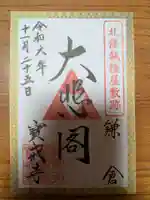 北條執権屋敷跡
鎌倉
大悲閣
令和六年
十一月二十五日
寳戒寺